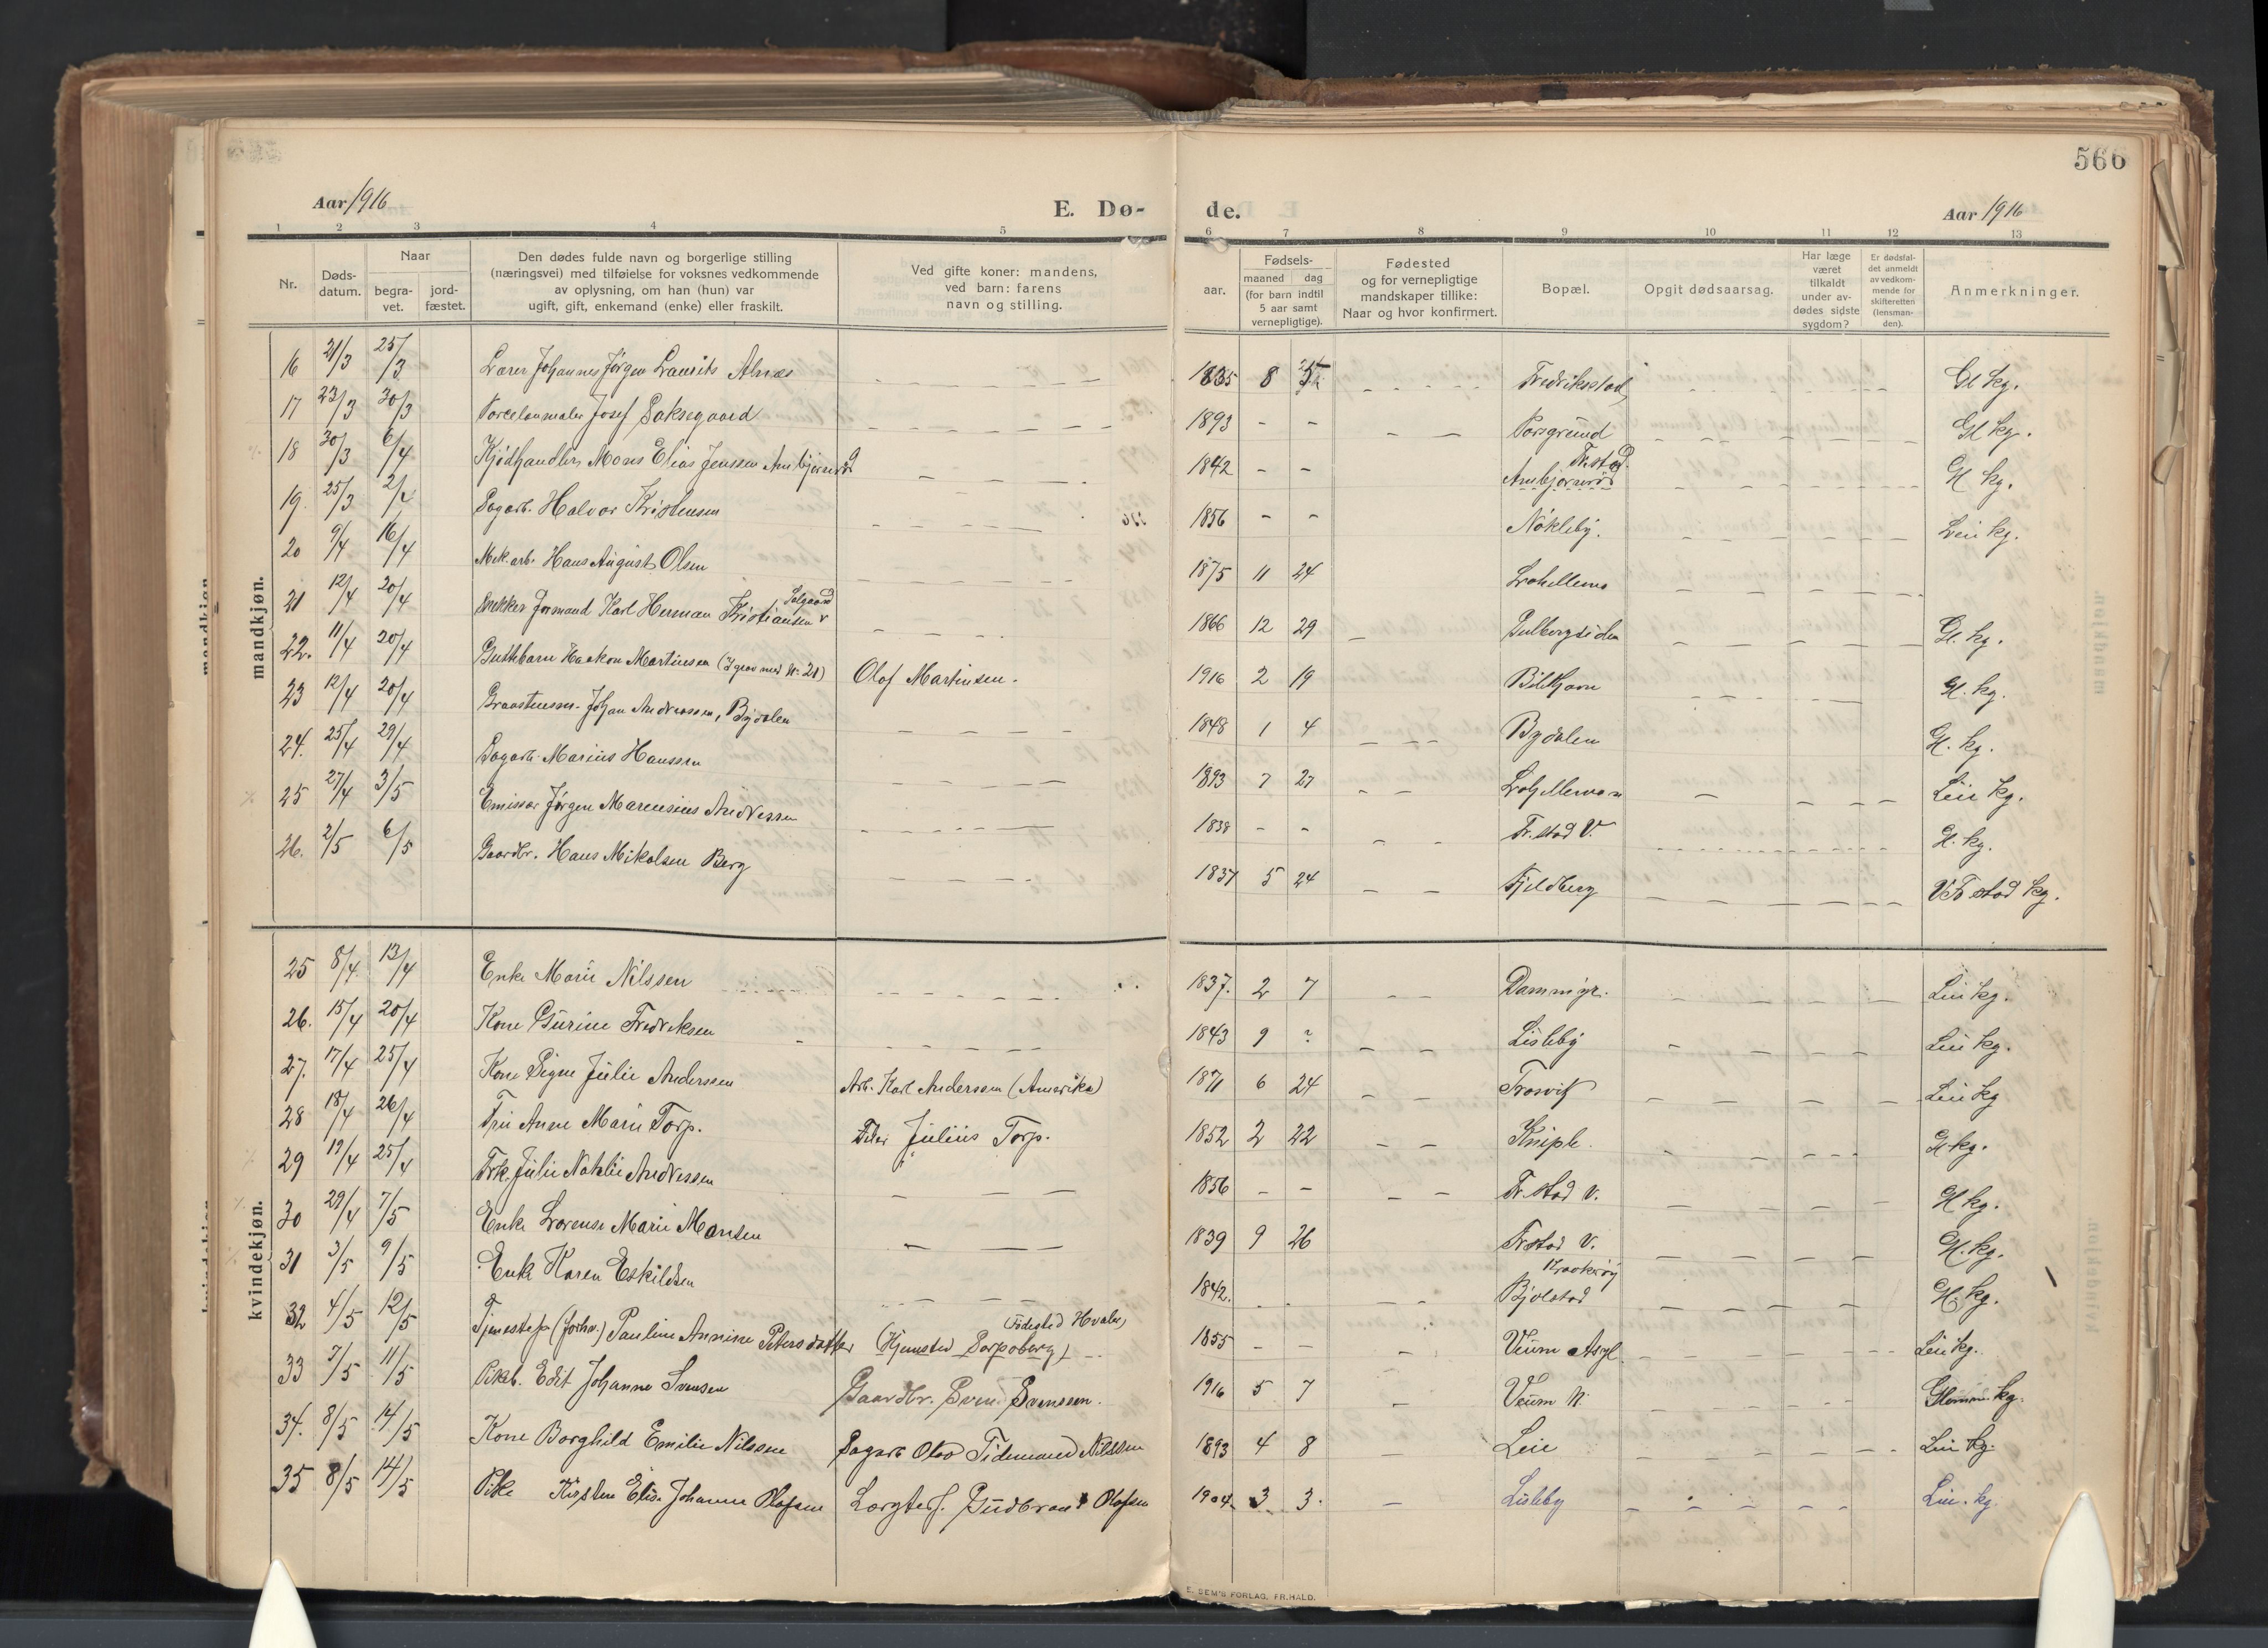 566
Aar 1916
E. Dø-
de.
Aar 1916
1 2 3 4 5 6 7 8 9 10 11 12 13
Nr.
Døds-
datum.
Naar
begra-
vet.
jord-
fæstet.
Den dødes fulde navn og borgerlige stilling
(næringsvei) med tilføielse for voksnes vedkommende
av oplysning, om han (hun) var
ugift, gift, enkemand (enke) eller fraskilt.
Ved gifte koner: mandens,
ved barn: farens
navn og stilling.
aar.
Fødsels-
maaned dag
(for barn indtil
5 aar samt
vernepligtige).
Fødested
og for vernepligtige
mandskaper tillike:
Naar og hvor konfirmert.
Bopæl.
Opgit dødsaarsag.
Har læge
været
tilkaldt
under av-
dødes sidste
sygdom?
Er dødsfal-
det anmeldt
av vedkom-
mende for
skifteretten
(lensman-
den).
Anmerkninger.
mandkjøn.
16 21/3 25/3 Lærer Johannes Jørgen Laurits Alnæs 1835 8 Fredrikstad Gl kg.
17 23/3 30/3 Porcelænsmaler Josef Saksegaard 1893 - - Porsgrund Gl kg.
18 30/3 6/4 Kjødhandler Mons Elias Jenssen Ambjørnrød 1842 - - Fr.stad Ambjørnrød Gl kg.
19. 25/3 2/4 Dagarb. Halvor Kristensen 1856 - - Nøkleby. Leie kg.
20 9/4 16/4 Mek. arb. Hans August Olsen 1875 11 24
21 12/4 20/4 Snekker formand Karl Herman Kristiansen Solgaard 1866 12 29 Gulbergsiden Gl. kg.
22. 11/4 20/4 Guttebarn Haakon Martinsen (I grav med Nr. 21) Olaf Martinsen. 1916 2 19 Gl. kg.
23 12/4 20/4 Johan Andreassen, Bydalen 1848 1 4 Bydalen Gl. kg.
24. 25/4 29/4 Dagarb. Marius Hanssen 1893 7 27 Leie kg.
25 27/4 3/5 Emissær Jørgen Marensius Andresen 1838 - - Fr. stad V. Gl. kg.
26. 2/5 6/5 Gaardbr. Hans Mikalsen Berg 1837 5 24 Fjeldberg V. Fr stad kg.
kvindekjøn.
25 8/4 13/4 Enke Marie Nilssen 1837. 2 7 Dammyr. Leie kg.
26. 15/4 20/4 Kone Gurine Fredriksen 1843 9 ? Lisleby Leie kg.
27. 17/4 25/4 Kone Signe Julie Anderssen Arb. Karl Anderssen (Amerika) 1871 6 24 Trosvik Leie kg
28 18/4 26/4 Fru Anne Marie Torp. Peter Julius Torp. 1852 2 22 Kniple. Gl kg.
29 19/4 25/4 Frk. Julie Natalie Andressen 1856 - - Fr. stad V. Gl kg.
30 29/4 7/5 Enke Lorense Marie Monsen 1839 9 26 Fr stad V. Gl. kg.
31 3/5 9/5 Enke Karen Eskildsen 1842. Kraakerøy Bjølstad Gl. kg.
32 4/5 12/5 Tjenestep (forhv.) Pauline Annine Petersdatter (Fødested Hvaler) (Hjemsted Sarpsborg) 1855 - - Veum Asyl. Leie kg.
33 7/5 11/5 Pikeb. Edit Johanne Svensen Gaardbr. Sven Svenssen. 1916 5 7 Veum N. Glemmen kg.
34. 8/5 14/5 Kone Borghild Emilie Nilssen Dagarb Olav Tidemand Nilssen 1893 4 8 Leie Leie kg.
35 8/5 14/5 Pike Kirsten Elise Johanne Olafsen Gudbrand Olafsen 1904 3 3. Lisleby Leie. kg.
E. SEM'S FORLAG, FR.HALD.